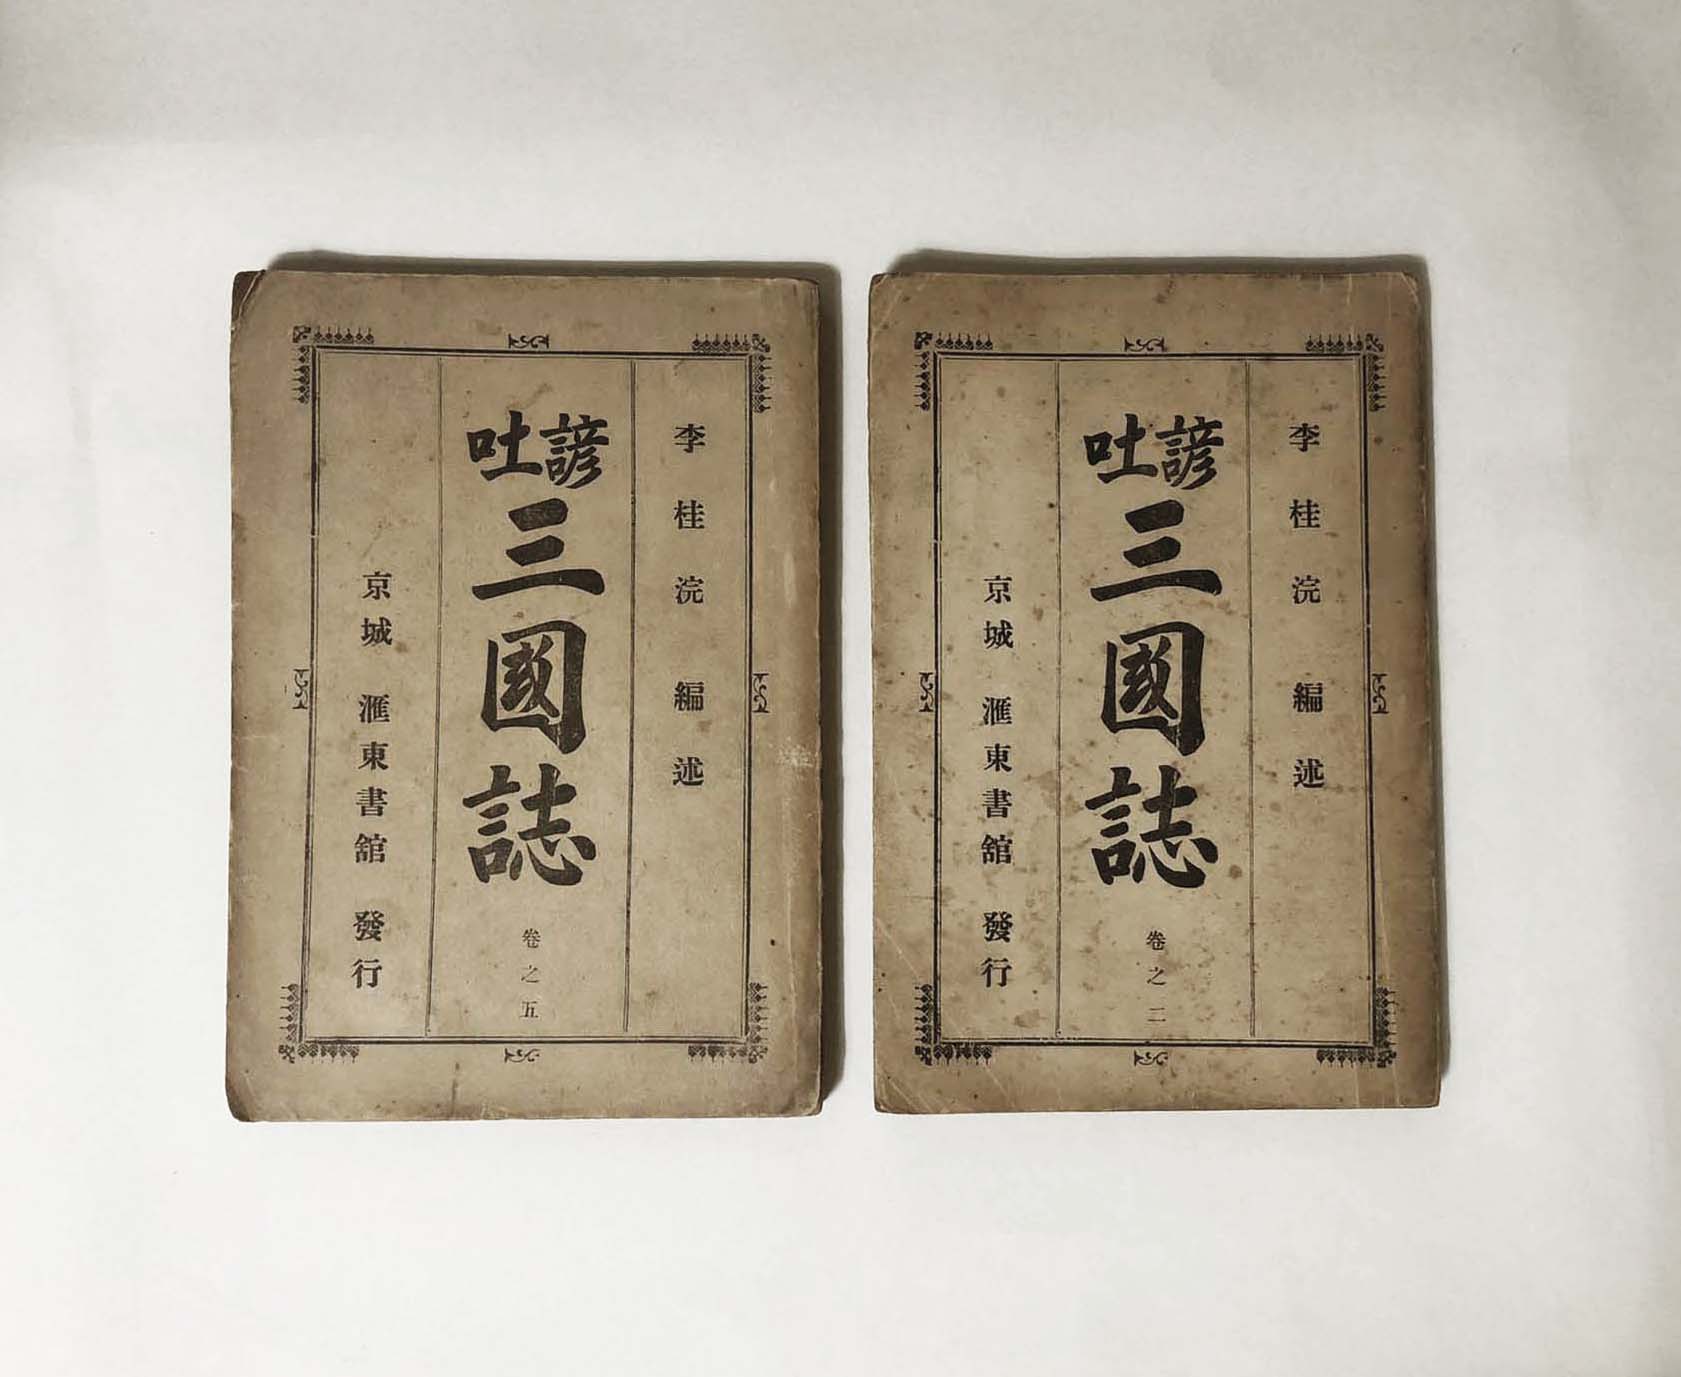 李桂浣 編述
諺吐
三國誌
卷之二
京城 滙東書舘 發行
李桂浣 編述
諺吐
三國誌
卷之五
京城 滙東書舘 發行